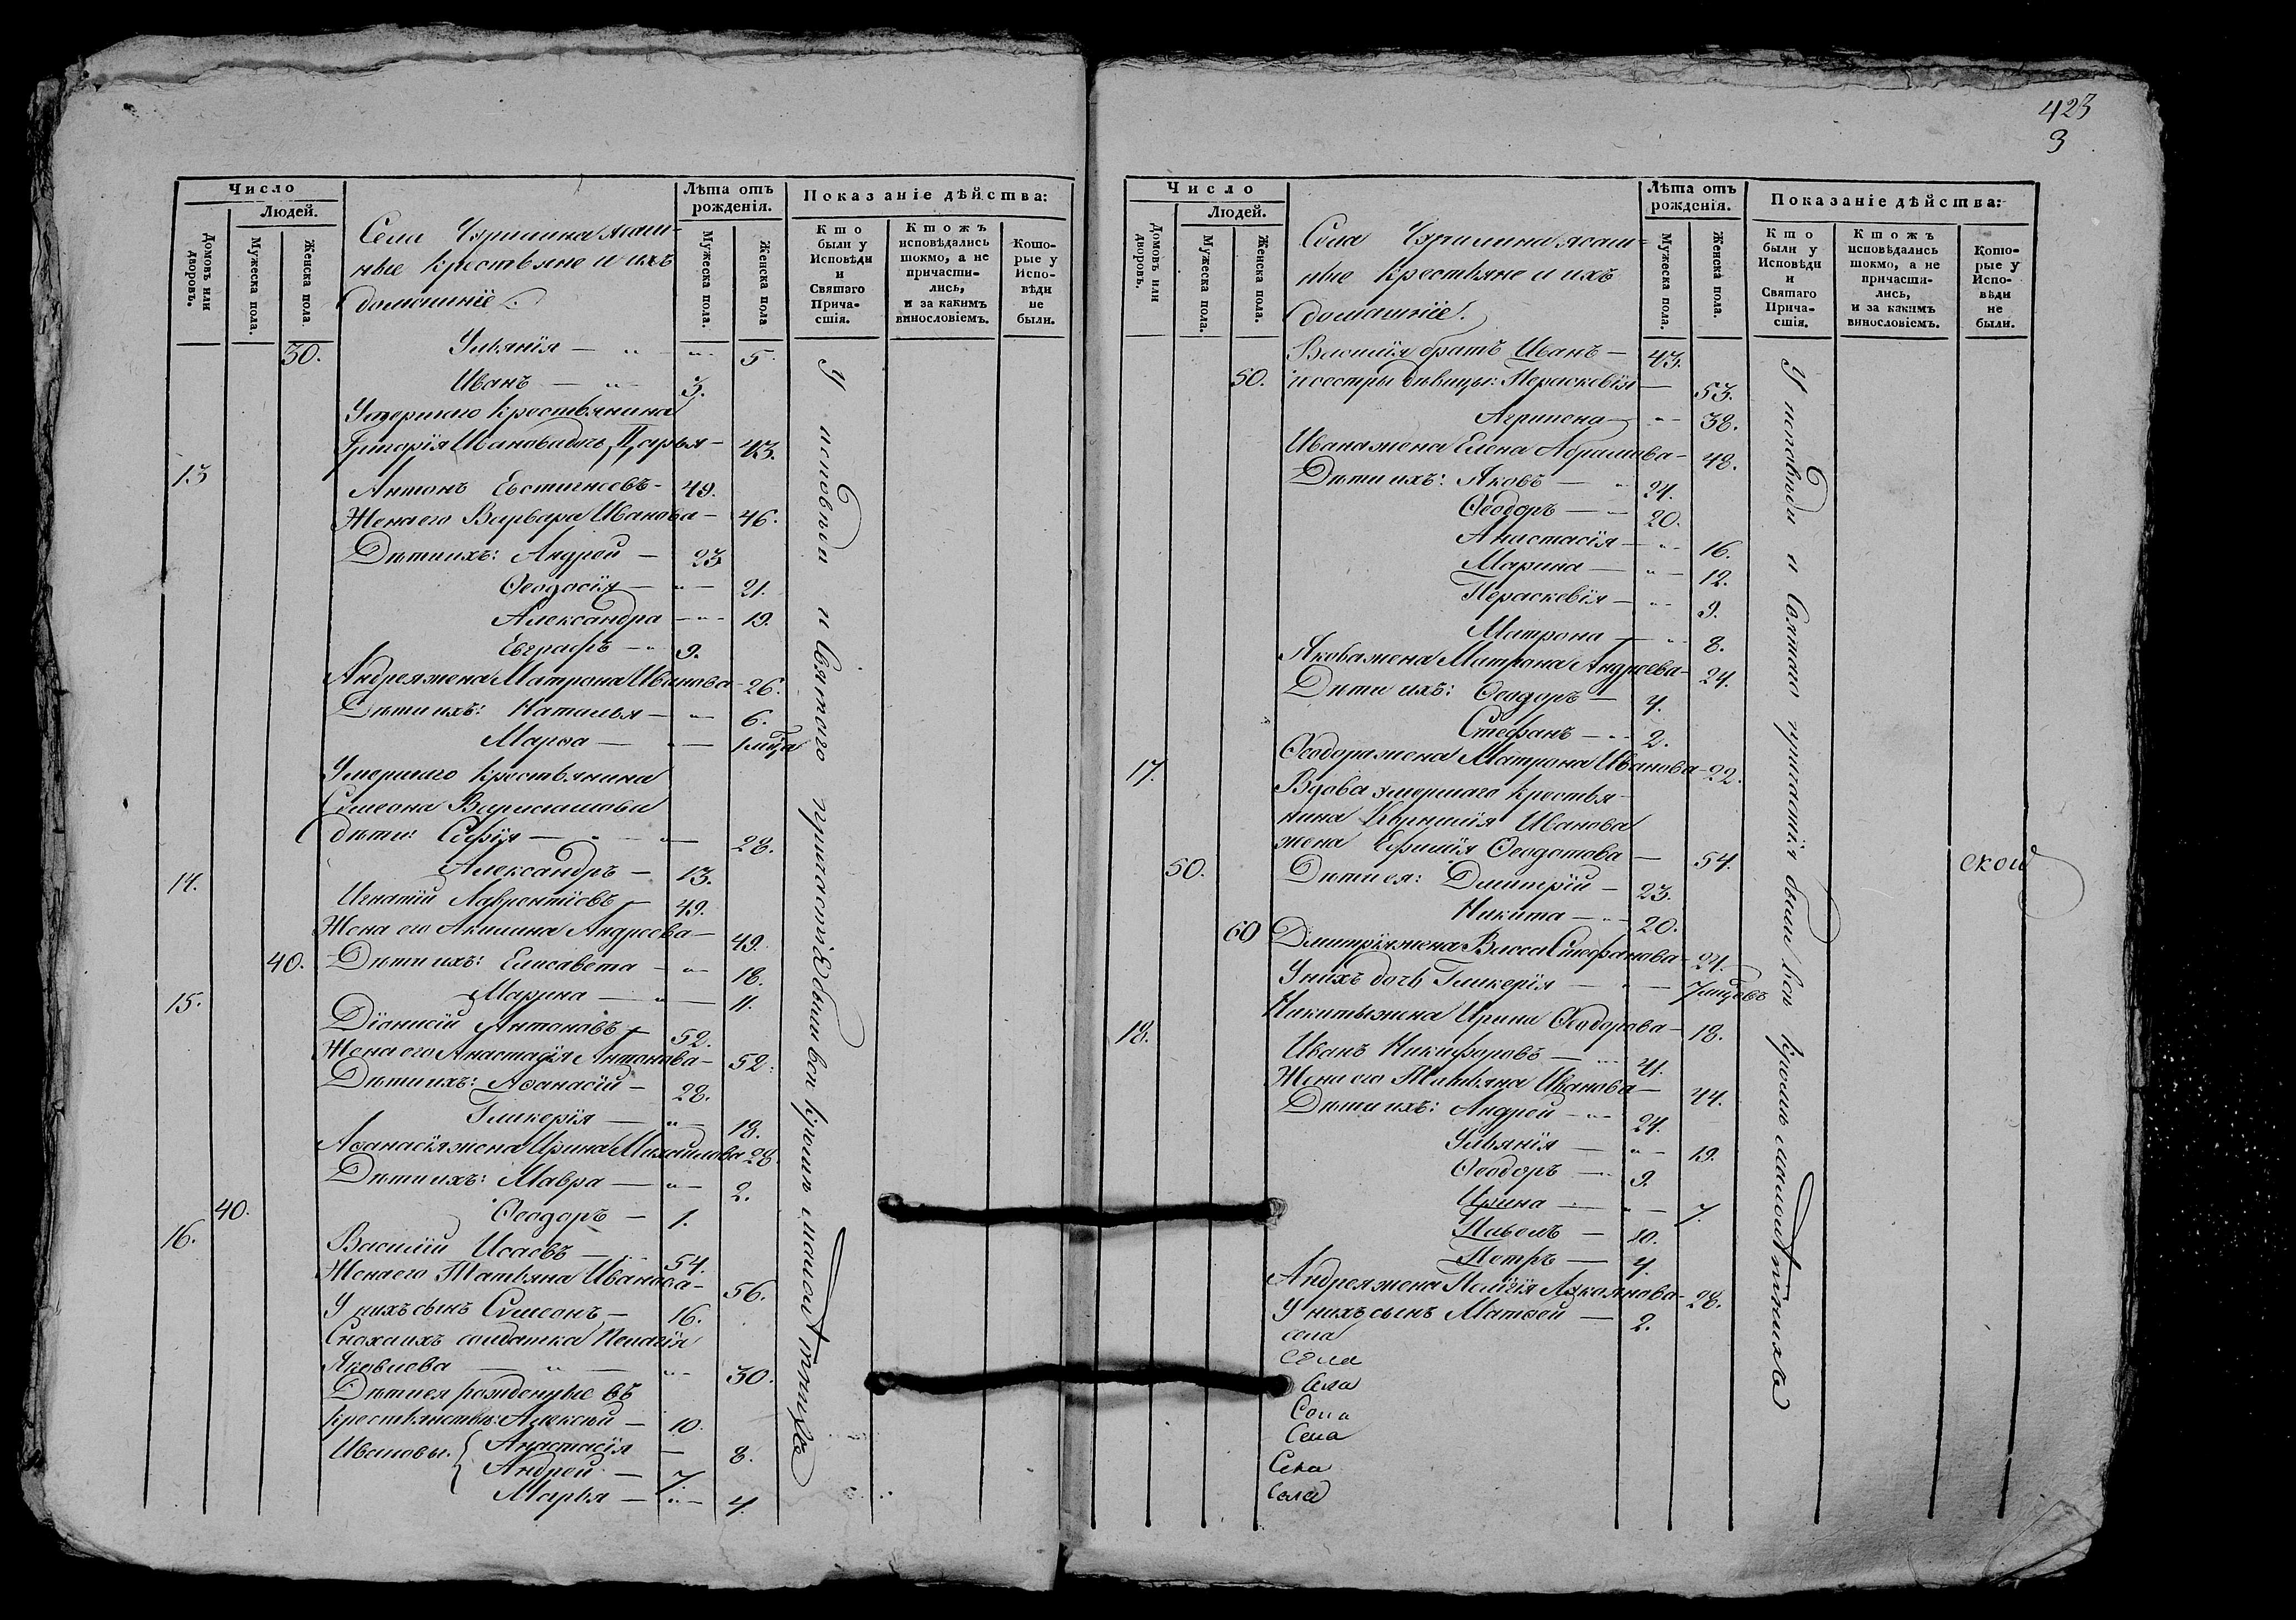 Число
Людей.
Домовъ или дворовъ.
Мужеска пола.
Женска пола.
Лѣта отъ рожденія.
Мужеска пола.
Женска пола
Показаніе дѣйства:
Кто были у Исповѣди и Святаго Причастія.
Ктожъ исповѣдались токмо, а не причастились, и за какимъ винословіемъ.
Которые у Исповѣди не были.
Села ясаш-
ные крестьяне и ихъ
домашніе.
30. Ульянія — 5.
Иванъ — 3.
Умершаго крестьянина
Григорія Иванова дочь Дарья — 43.
13 Антонъ Евстигнеевъ — 49.
Жена его Варвара Иванова — 46.
Дѣти ихъ: Андрей — 23
Ѳеодосія — 21.
Александра — 19.
Евграфъ — 9.
Андрея жена Матрона Иванова — 26.
Дѣти ихъ: Наталья — 6.
Марѳа — 1 мѣсца
Умершаго крестьянина
Симеона
дѣти: Софія — 28.
Александръ — 13.
14. Игнатій Лаврентіевъ — 49.
Жена его Акилина Андреева — 49.
40. Дѣти ихъ: Елисавета — 18.
Марина — 11.
15. Діонисій Антоновъ — 52.
Жена его Анастасія Антонова — 52.
Дѣти ихъ: Аѳанасій — 28.
Гликерія — 18.
Аѳанасія жена Ирина 28.
Дѣти ихъ: Мавра — 2.
40. Ѳеодоръ — 1.
16. Василій Исаевъ — 54.
Жена его Татьяна Иванова — 56.
У нихъ сынъ Симеонъ — 16.
Сноха ихъ солдатка Пелагія
Яковлева — 30.
Дѣти ея рожденные въ
крестьянствѣ: Алексѣй — 10.
Ивановы. { Анастасія — 8.
Андрей — 7.
Марья — 4.
У исповѣди и Святаго причастія были всѣ кромѣ малолѣтнихъ
423
3
Число
Людей.
Домовъ или дворовъ.
Мужеска пола.
Женска пола.
Лѣта отъ рожденія.
Мужеска пола.
Женска пола.
Показаніе дѣйства:
Кто были у Исповѣди и Святаго Причастія.
Ктожъ исповѣдались токмо, а не причастились, и за какимъ винословіемъ.
Которые у Исповѣди не были.
Села ясаш-
ные крестьяне и ихъ
домашніе.
Василія братъ Иванъ — 43.
50. и сестры дѣвицы: Параскевія — 53.
Агрипена — 38.
Ивана жена Елена Абрамова — 48.
Дѣти ихъ: Яковъ — 24.
Ѳеодоръ — 20.
Анастасія — 16.
Марина — 12.
Параскевія — 9.
Матрона — 8.
Якова жена Матрона Андреева — 24.
Дѣти ихъ: Ѳеодоръ — 4.
Стефанъ — 2.
Ѳеодора жена Матрона Иванова — 22.
17. Вдова умершаго крестья-
нина Иванова
жена Ѳеодотова — 54.
50. Дѣти ея: Димитрій — 23.
Никита — 20.
60 Димитрія жена Васса Стефанова — 24.
У нихъ дочь Гликерія — 7 мѣсцевъ
Никиты жена Ирина Ѳеодорова — 18.
18. Иванъ Никифоровъ — 41.
Жена его Татьяна Иванова — 44.
Дѣти ихъ: Андрей — 24.
Ульянія — 19.
Ѳеодоръ — 9.
Ирина — 7.
Павелъ — 10.
Петръ — 4.
Андрея жена 28.
У нихъ сынъ Матѳей — 2.
села
села
Села
Села
Села
Села
Села
У исповѣди и Святаго причастія были всѣ кромѣ малолѣтнихъ
ской